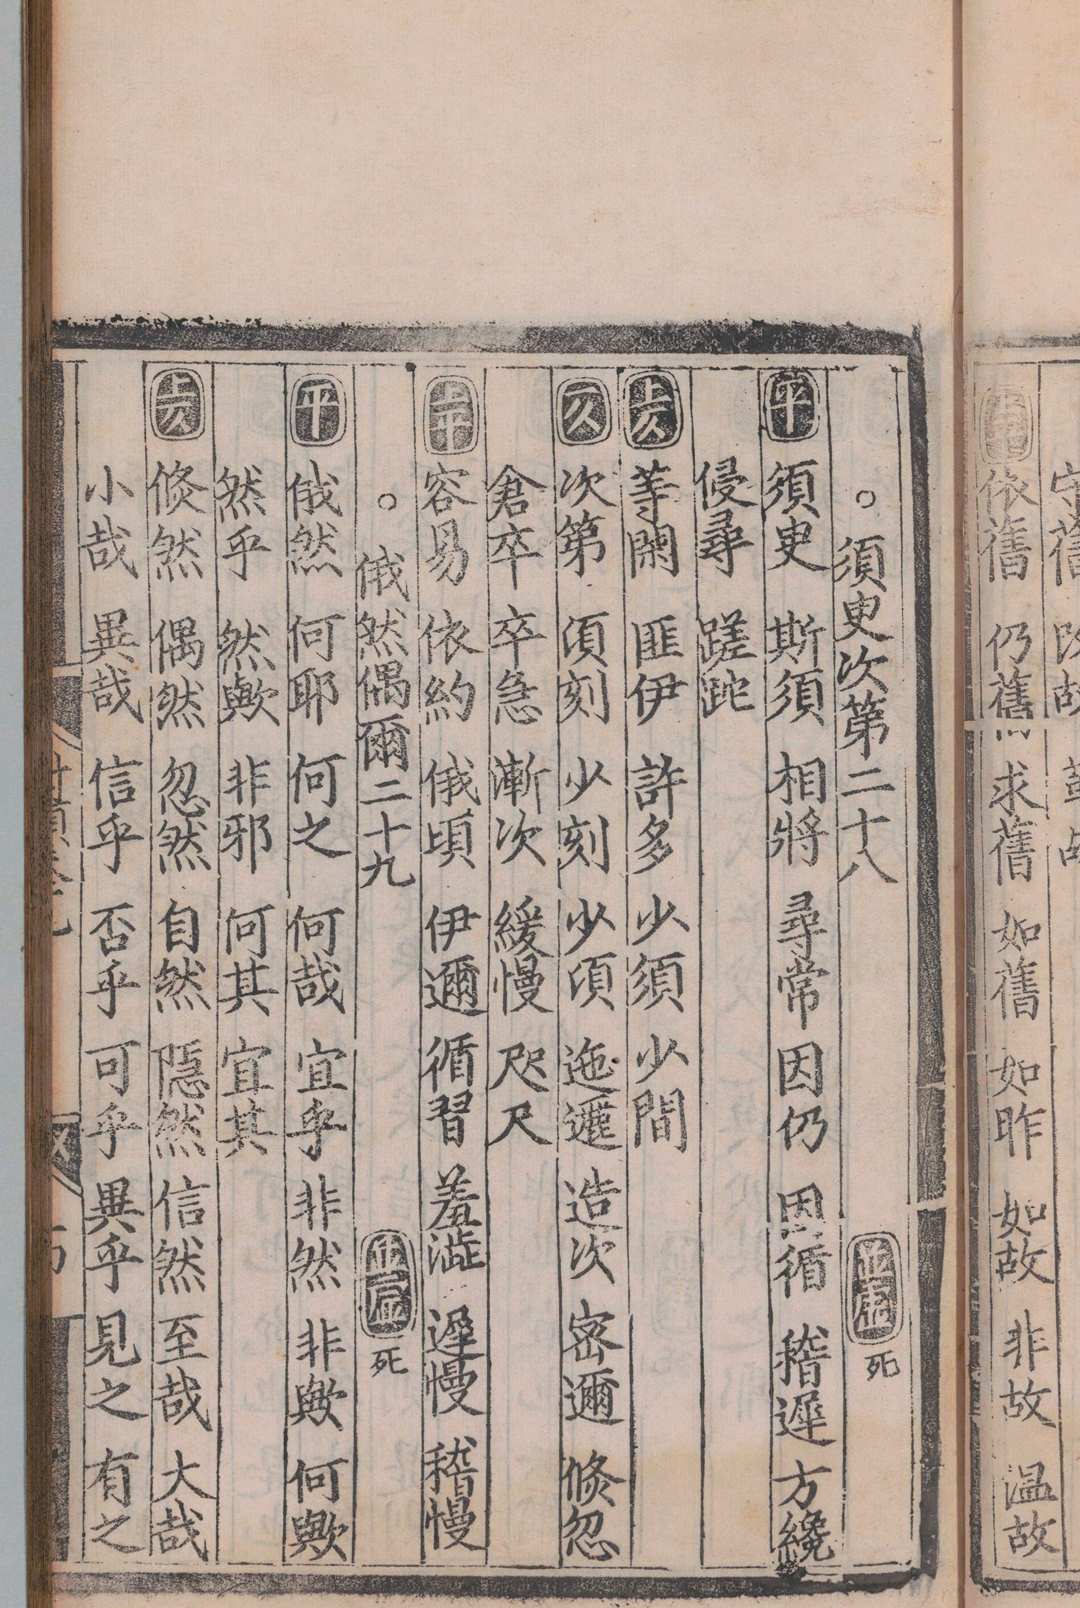 守舊 改故
上平 依舊 仍舊 求舊 如舊 如昨 如故 非故 温故
○須臾次第二十八 並虛 死
平 須臾 斯須 相將 尋常 因仍 因循 稽遲 方纔
侵尋 蹉跎
上入 等閑 匪伊 許多 少須 少間
入 次第 須刻 少刻 少頃 迤邐 造次 密邇 倐忽
倉卒 卒急 漸次 緩慢 咫尺
上平 容易 依約 俄頃 伊邇 循習 羞澁 遲慢 稽慢
○俄然偶爾二十九 並虛 死
平 俄然 何耶 何之 何哉 宜乎 非然 非歟 何歟
然乎 然歟 非邪 何其 宜其
上入 倐然 偶然 忽然 自然 隱然 信然 至哉 大哉
小哉 異哉 信乎 否乎 可乎 異乎 見之 有之